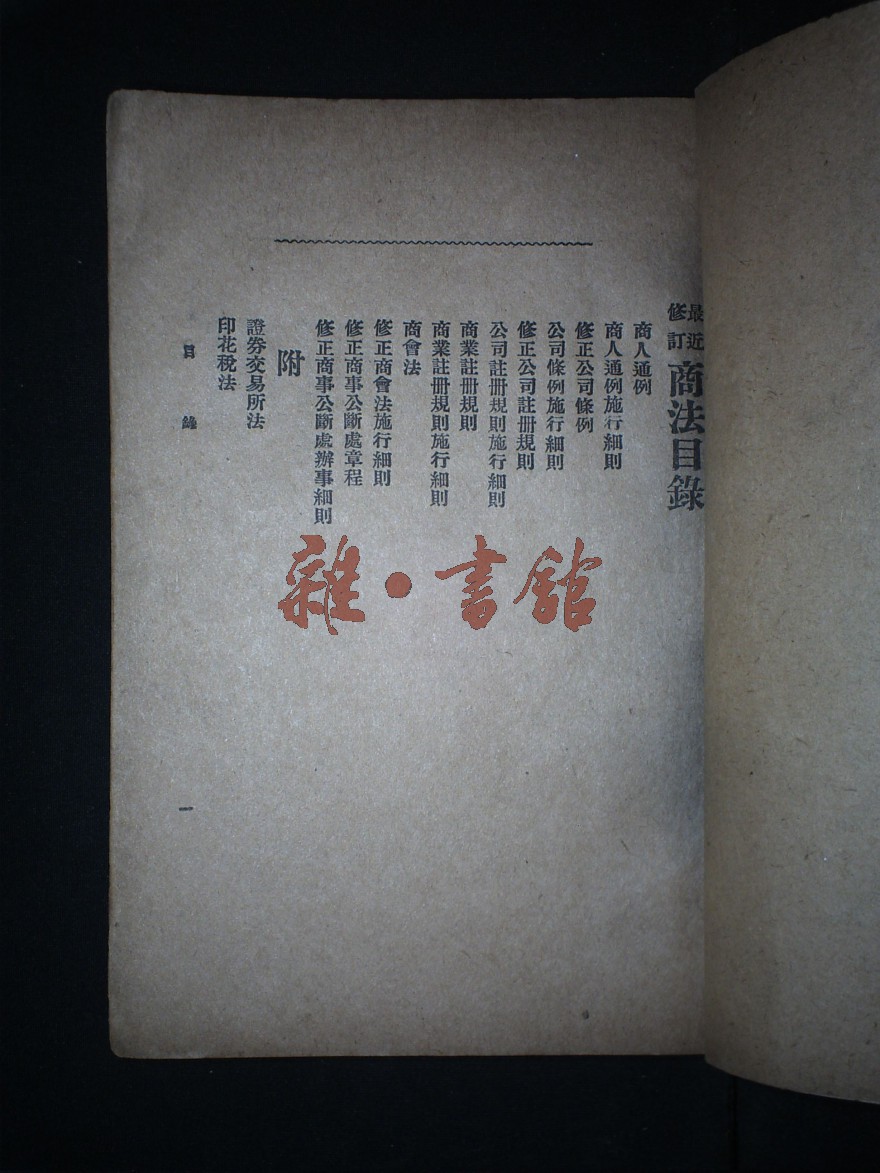 最近修訂商法目錄
商人通例
商人通例施行細則
修正公司條例
公司條例施行細則
修正公司註册規則
公司註册規則施行細則
商業註册規則
商業註册規則施行細則
商會法
修正商會法施行細則
修正商事公斷處章程
修正商事公斷處辦事細則
附
證券交易所法
印花稅法
目錄
一
雜·書館